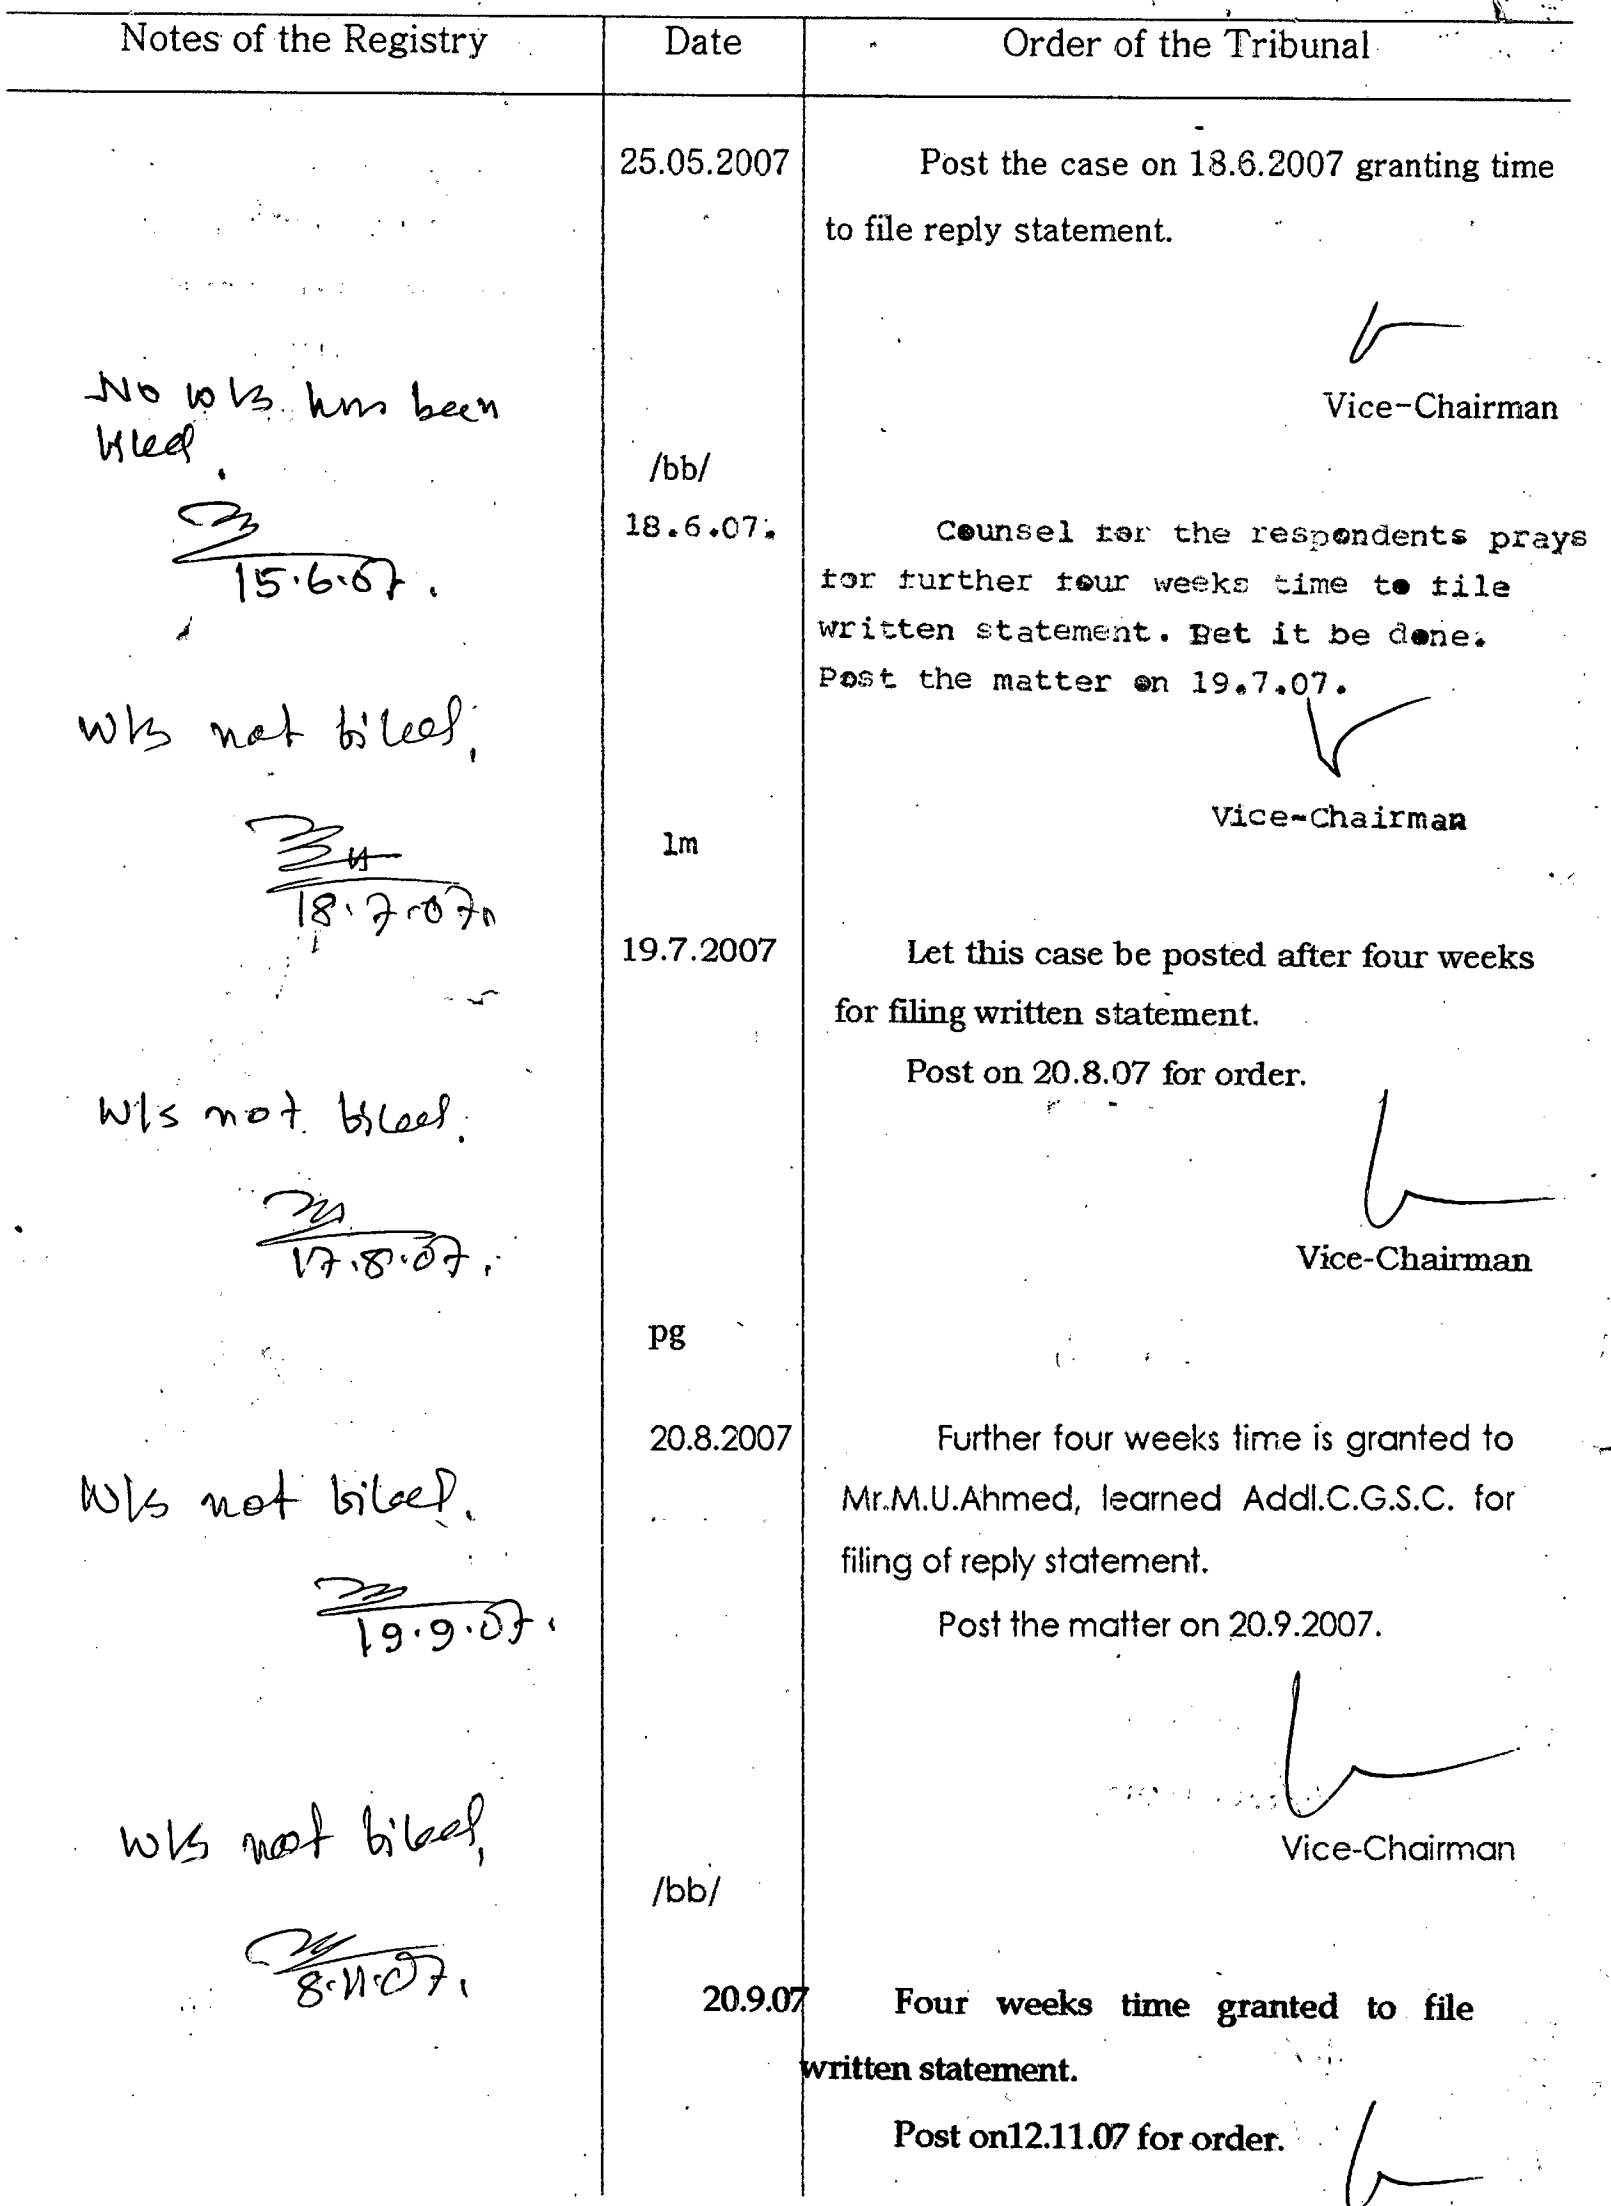 Notes of the Registry Date Order of the Tribunal
25.05.2007 Post the case on 18.6.2007 granting time
to file reply statement.
Vice-Chairman
No w/s has been
filed.
/bb/
15.6.07.
18.6.07. Counsel for the respondents prays
for further four weeks time to file
written statement. Let it be done.
Post the matter on 19.7.07.
W/s not filed.
Vice-Chairman
lm
18.7.07
19.7.2007 Let this case be posted after four weeks
for filing written statement.
Post on 20.8.07 for order.
W/s not filed.
17.8.07.
Vice-Chairman
pg
20.8.2007 Further four weeks time is granted to
Mr.M.U.Ahmed, learned Addl.C.G.S.C. for
filing of reply statement.
W/s not filed.
19.9.07.
Post the matter on 20.9.2007.
Vice-Chairman
W/s not filed.
/bb/
8.11.07.
20.9.07 Four weeks time granted to file
written statement.
Post on12.11.07 for order.